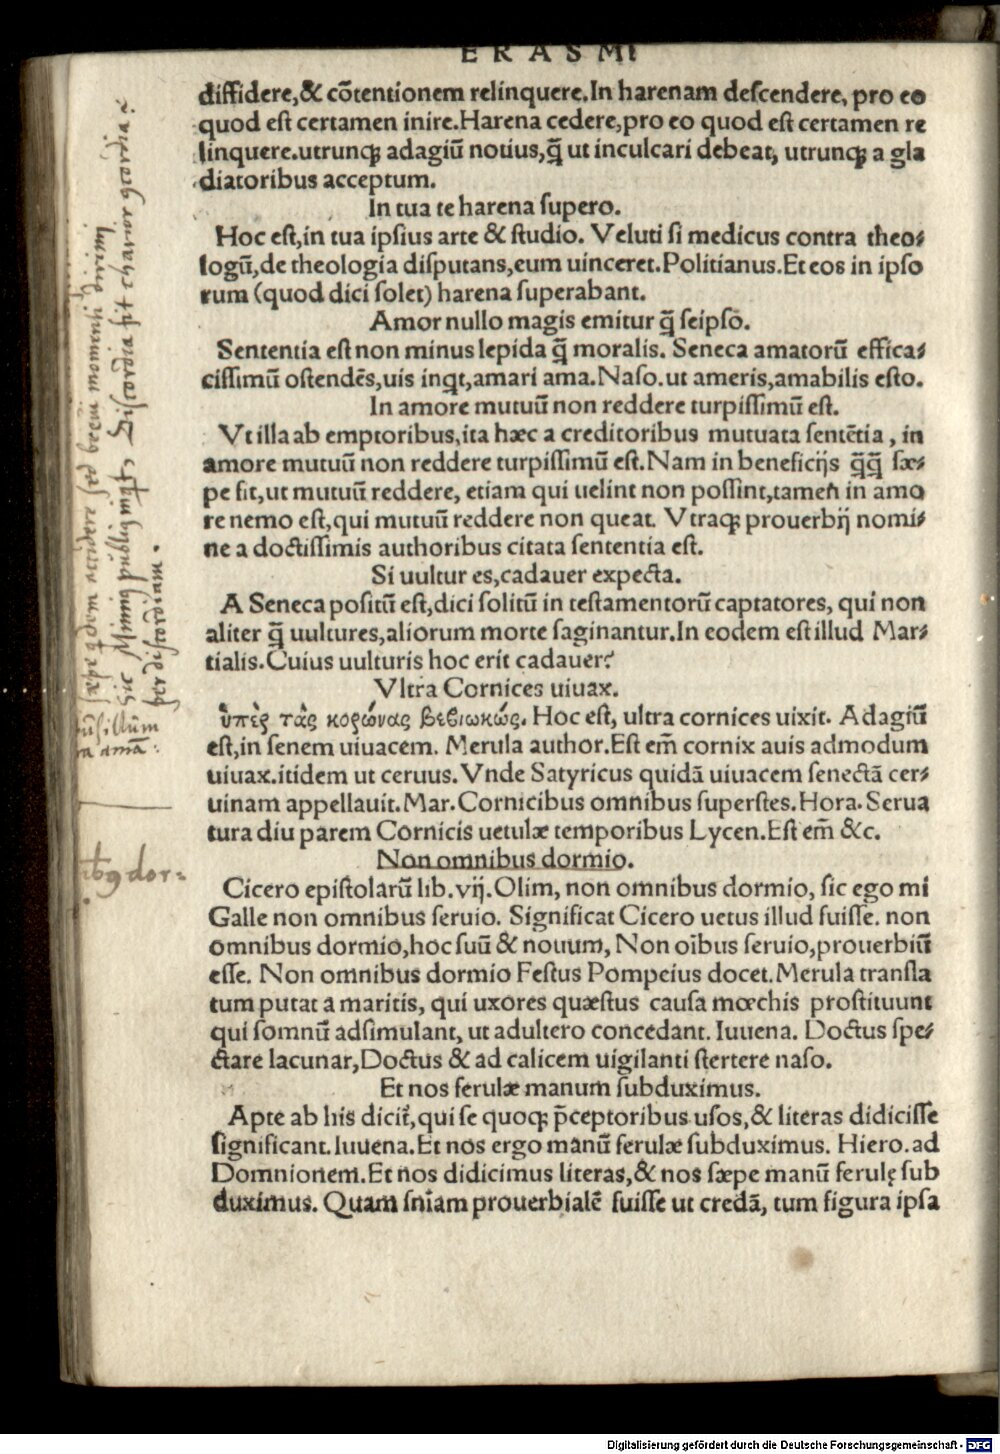 ERASMI
diffidere,& cõtentionem relinquere.In harenam deſcendere, pro eo
quod eſt certamen inire.Harena cedere,pro eo quod eſt certamen re
linquere.utrunqꝫ adagiũ notius,q̃ ut inculcari debeat, utrunqꝫ a gla
diatoribus acceptum.
In tua te harena ſupero.
Hoc eſt,in tua ipſius arte & ſtudio. Veluti ſi medicus contra theo⸗
logũ,de theologia diſputans,eum uinceret.Politianus.Et eos in ipſo
rum (quod dici ſolet) harena ſuperabant.
Amor nullo magis emitur q̃ ſeipſo.
Sententia eſt non minus lepida q̃ moralis. Seneca amatorũ effica⸗
ciſſimũ oſtendẽs,uis inqt,amari ama.Naſo.ut ameris,amabilis eſto.
In amore mutuũ non reddere turpiſſimũ eſt.
Vt illa ab emptoribus,ita hæc a creditoribus mutuata ſentẽtia, in
amore mutuũ non reddere turpiſſimũ eſt.Nam in beneficijs q̃q̃ ſæ⸗
pe fit,ut mutuũ reddere, etiam qui uelint non poſſint,tamen in amo
re nemo eſt,qui mutuũ reddere non queat. Vtraqꝫ prouerbij nomi⸗
ne a doctiſſimis authoribus citata ſententia eſt.
Si uultur es,cadauer expecta.
A Seneca poſitũ eſt,dici ſolitũ in teſtamentorũ captatores, qui non
aliter q̃ uultures,aliorum morte ſaginantur.In eodem eſt illud Mar⸗
tialis.Cuius uulturis hoc erit cadauer?
Vltra Cornices uiuax.
ὑπὲρ τὰς κορώνας βεβιωκώς. Hoc eſt, ultra cornices uixit. Adagiũ
eſt,in ſenem uiuacem. Merula author.Eſt em̃ cornix auis admodum
uiuax.itidem ut ceruus.Vnde Satyricus quidã uiuacem ſenectã cer⸗
uinam appellauit.Mar.Cornicibus omnibus ſuperſtes.Hora.Serua
tura diu parem Cornicis uetulæ temporibus Lycen.Eſt em̃ &c.
Non omnibus dormio.
Cicero epiſtolarũ lib.vij.Olim, non omnibus dormio, ſic ego mi
Galle non omnibus ſeruio. Significat Cicero uetus illud fuiſſe. non
omnibus dormio,hoc ſuũ & nouum, Non oĩbus ſeruio,prouerbiũ
eſſe. Non omnibus dormio Feſtus Pompeius docet.Merula tranſla
tum putat a maritis, qui uxores quæſtus cauſa mœchis proſtituunt
qui ſomnũ adſimulant, ut adultero concedant. Iuuena. Doctus ſpe⸗
ctare lacunar,Doctus & ad calicem uigilanti ſtertere naſo.
Et nos ferulæ manum ſubduximus.
Apte ab his dicit̃,qui ſe quoqꝫ p̃ceptoribus uſos,& literas didiciſſe
ſignificant.Iuuena.Et nos ergo manũ ferulæ ſubduximus. Hiero.ad
Domnionem.Et nos didicimus literas,& nos ſæpe manũ ferulę ſub
duximus. Quam ſniam prouerbialẽ fuiſſe ut credã, tum figura ipſa
ſæpe qdem accidere ſed breui momenti dirimi
ſic Mimus publiꝰ inqt, Diſcordia fit charior cõcordia:
per diſcordiam.
dor⸗
Digitalisierung gefördert durch die Deutsche Forschungsgemeinschaft - DFG